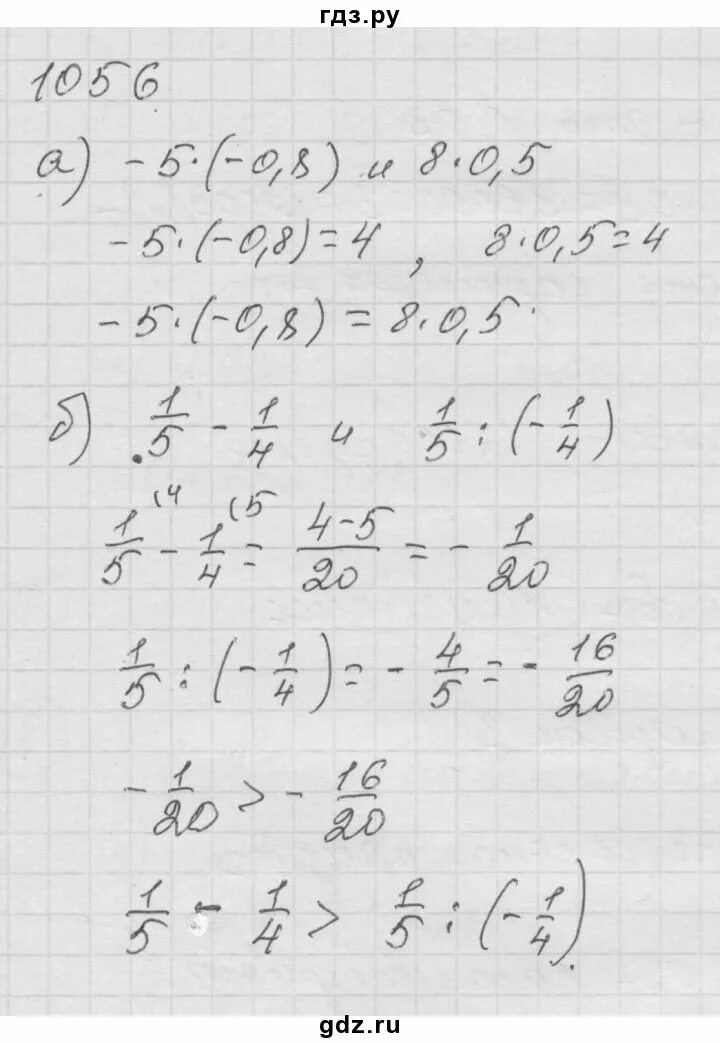 гдз.ру
1056
а) -5·(-0,8) и 8·0,5
-5·(-0,8)=4, 8·0,5=4
-5·(-0,8)=8·0,5.
б) 1/5 - 1/4 и 1/5 : (-1/4)
1/5 (4 - 1/4 (5 = 4-5/20 = -1/20
1/5 : (-1/4) = -4/5 = -16/20
-1/20 > -16/20
1/5 - 1/4 > 1/5 : (-1/4).
gdz.ru